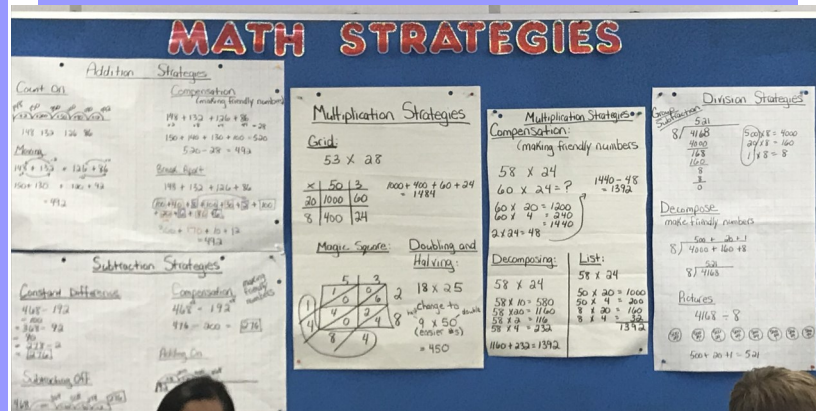 MATH STRATEGIES
Addition Strategies
Count On
148 152 126 86
Moving
148 + 152 + 126 + 86
Compensation
(making friendly numbers)
148 + 152 + 126 + 86
520 - 28 = 492
Break Apart
148 + 152 + 126 + 86
= 492
Subtraction Strategies
Constant Difference
468 - 192
Compensation
making
friendly
numbers
468 - 192
476 - 200 = 276
Adding On
Subtracting Off
468
Multiplication Strategies
Grid:
53 x 28
x 50 3
20 1000 60
8 400 24
1000 + 400 + 60 + 24
= 1484
Magic Square:
5 3
1 0 0 6 2
4 0 2 4 8
1
4
8 4
Doubling and
Halving:
18 x 25
Change to
9 x 50
(easier #s)
= 450
Multiplication Strategies
Compensation:
(making friendly numbers
58 x 24
60 x 24 = ?
60 x 20 = 1200
60 x 4 = 240
= 1440
2 x 24 = 48
1440 - 48
= 1392
Decomposing:
58 x 24
58 x 10 = 580
58 x 20 = 1160
58 x 2 = 116
58 x 4 = 232
1160 + 232 = 1392
List:
58 x 24
50 x 20 = 1000
50 x 4 = 200
8 x 20 = 160
8 x 4 = 32
1392
Division Strategies
Group
Subtraction
521
8 4168
4000
168
160
8
8
0
500 x 8 = 4000
20 x 8 = 160
1 x 8 = 8
Decompose
make friendly numbers
500 + 20 + 1
8 4000 + 160 + 8
521
8 4168
Pictures
4168 ÷ 8
500 + 20 + 1 = 521